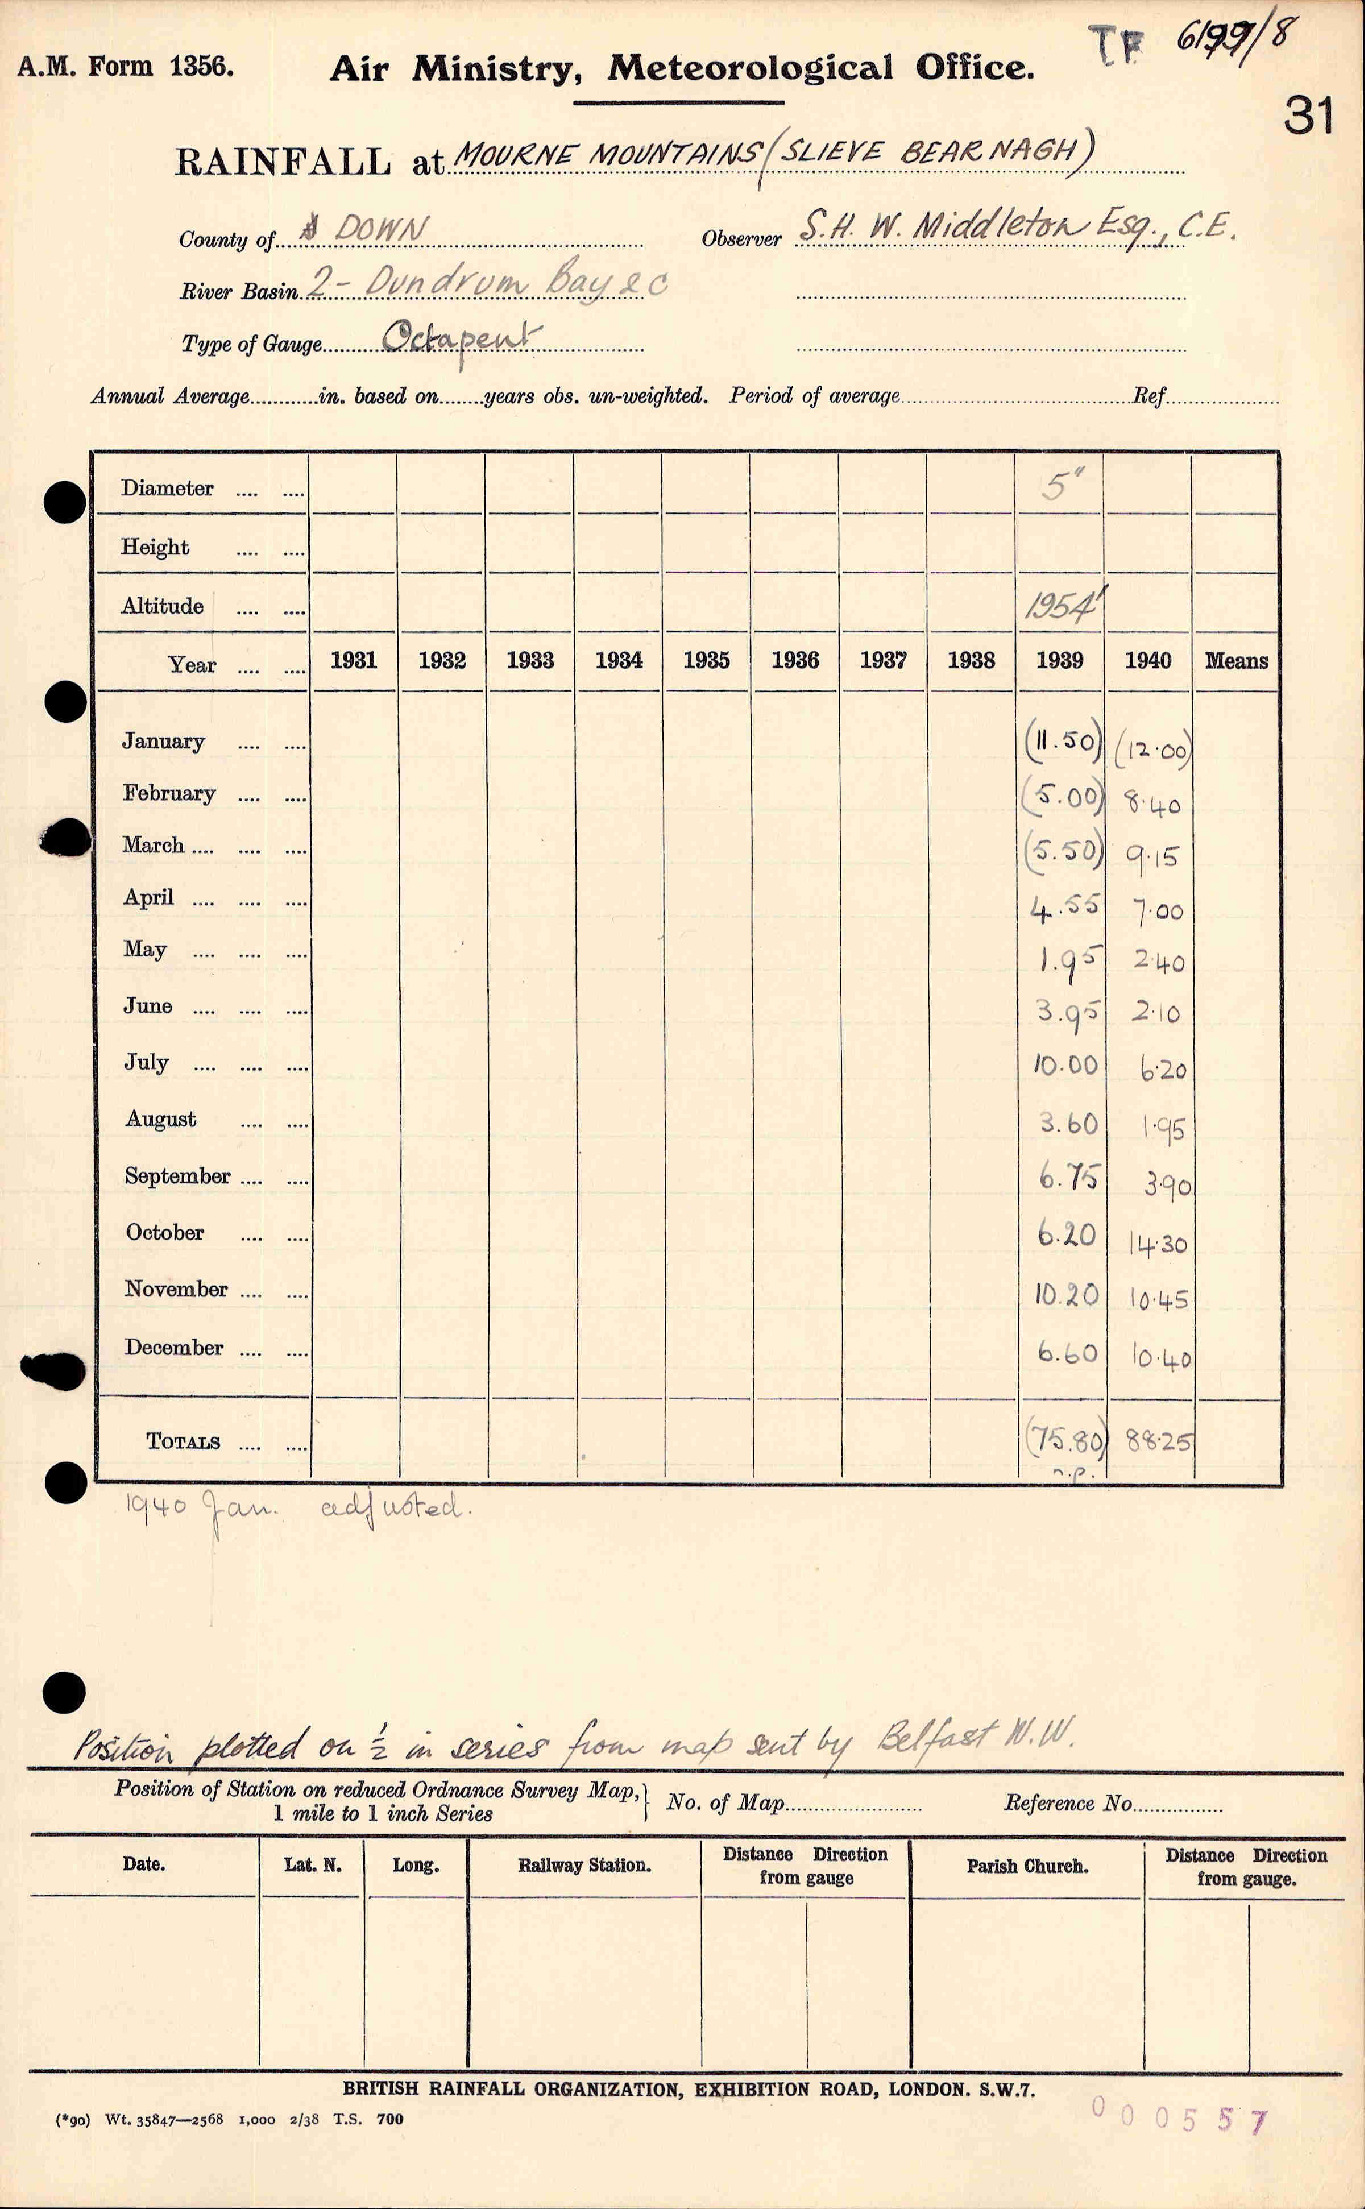 TF 6199/8
A.M. Form 1356. Air Ministry, Meteorological Office.
31
RAINFALL at MOURNE MOUNTAINS (SLIEVE BEARNAGH)
County of DOWN Observer S.H.W. Middleton Esq., C.E.
River Basin 2- Dundrum Bay &c
Type of Gauge Octapent
Annual Average in. based on years obs. un-weighted. Period of average Ref
Diameter .... .... 5"
Height .... ....
Altitude .... .... 1954'
Year .... .... 1931 1932 1933 1934 1935 1936 1937 1938 1939 1940 Means
January .... .... (11.50) (12.00)
February .... .... (5.00) 8.40
March .... .... .... (5.50) 9.15
April .... .... .... 4.55 7.00
May .... .... .... 1.95 2.40
June .... .... .... 3.95 2.10
July .... .... .... 10.00 6.20
August .... .... 3.60 1.95
September .... .... 6.75 3.90
October .... .... 6.20 14.30
November .... .... 10.20 10.45
December .... .... 6.60 10.40
TOTALS .... .... (75.80) 88.25
n.p.
1940 Jan. adjusted.
Position plotted on ½ in series from map sent by Belfast W.W.
Position of Station on reduced Ordnance Survey Map, } No. of Map Reference No
1 mile to 1 inch Series
Date. Lat. N. Long. Railway Station. Distance Direction from gauge Parish Church. Distance Direction from gauge.
BRITISH RAINFALL ORGANIZATION, EXHIBITION ROAD, LONDON. S.W.7.
(*90) Wt. 35847—2568 1,000 2/38 T.S. 700
000557